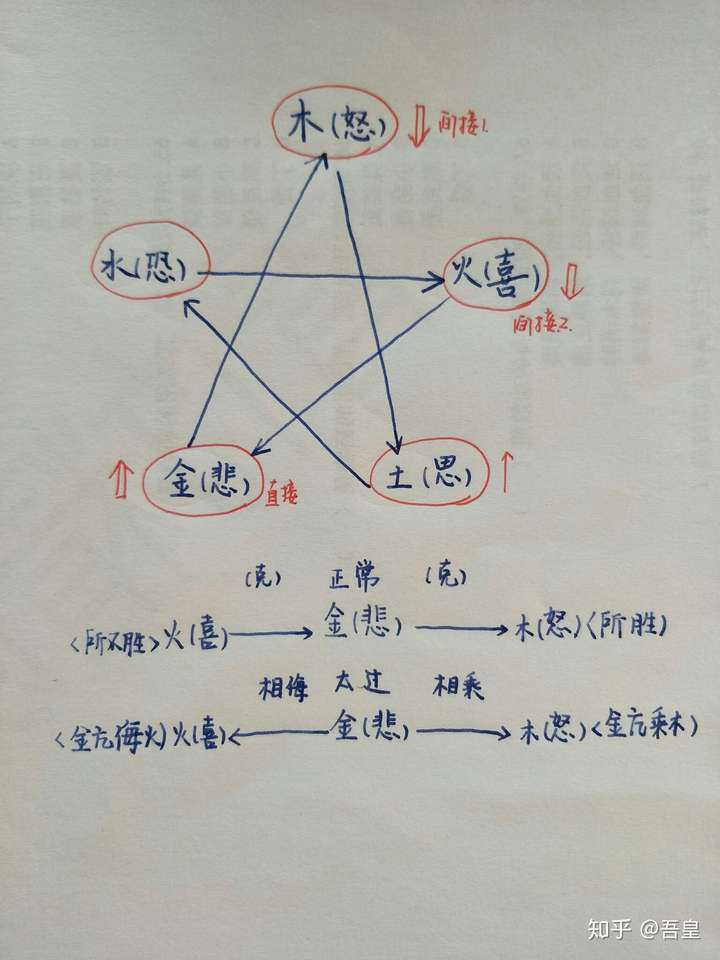 木(怒) 间接1.
水(恐) 火(喜)
间接2.
金(悲) 直接 土(思)
(克) 正常 (克)
<所不胜>火(喜) 金(悲) 木(怒)<所胜>
相侮 太过 相乘
<金亢侮火>火(喜) 金(悲) 木(怒)<金亢乘木>
知乎 @吾皇